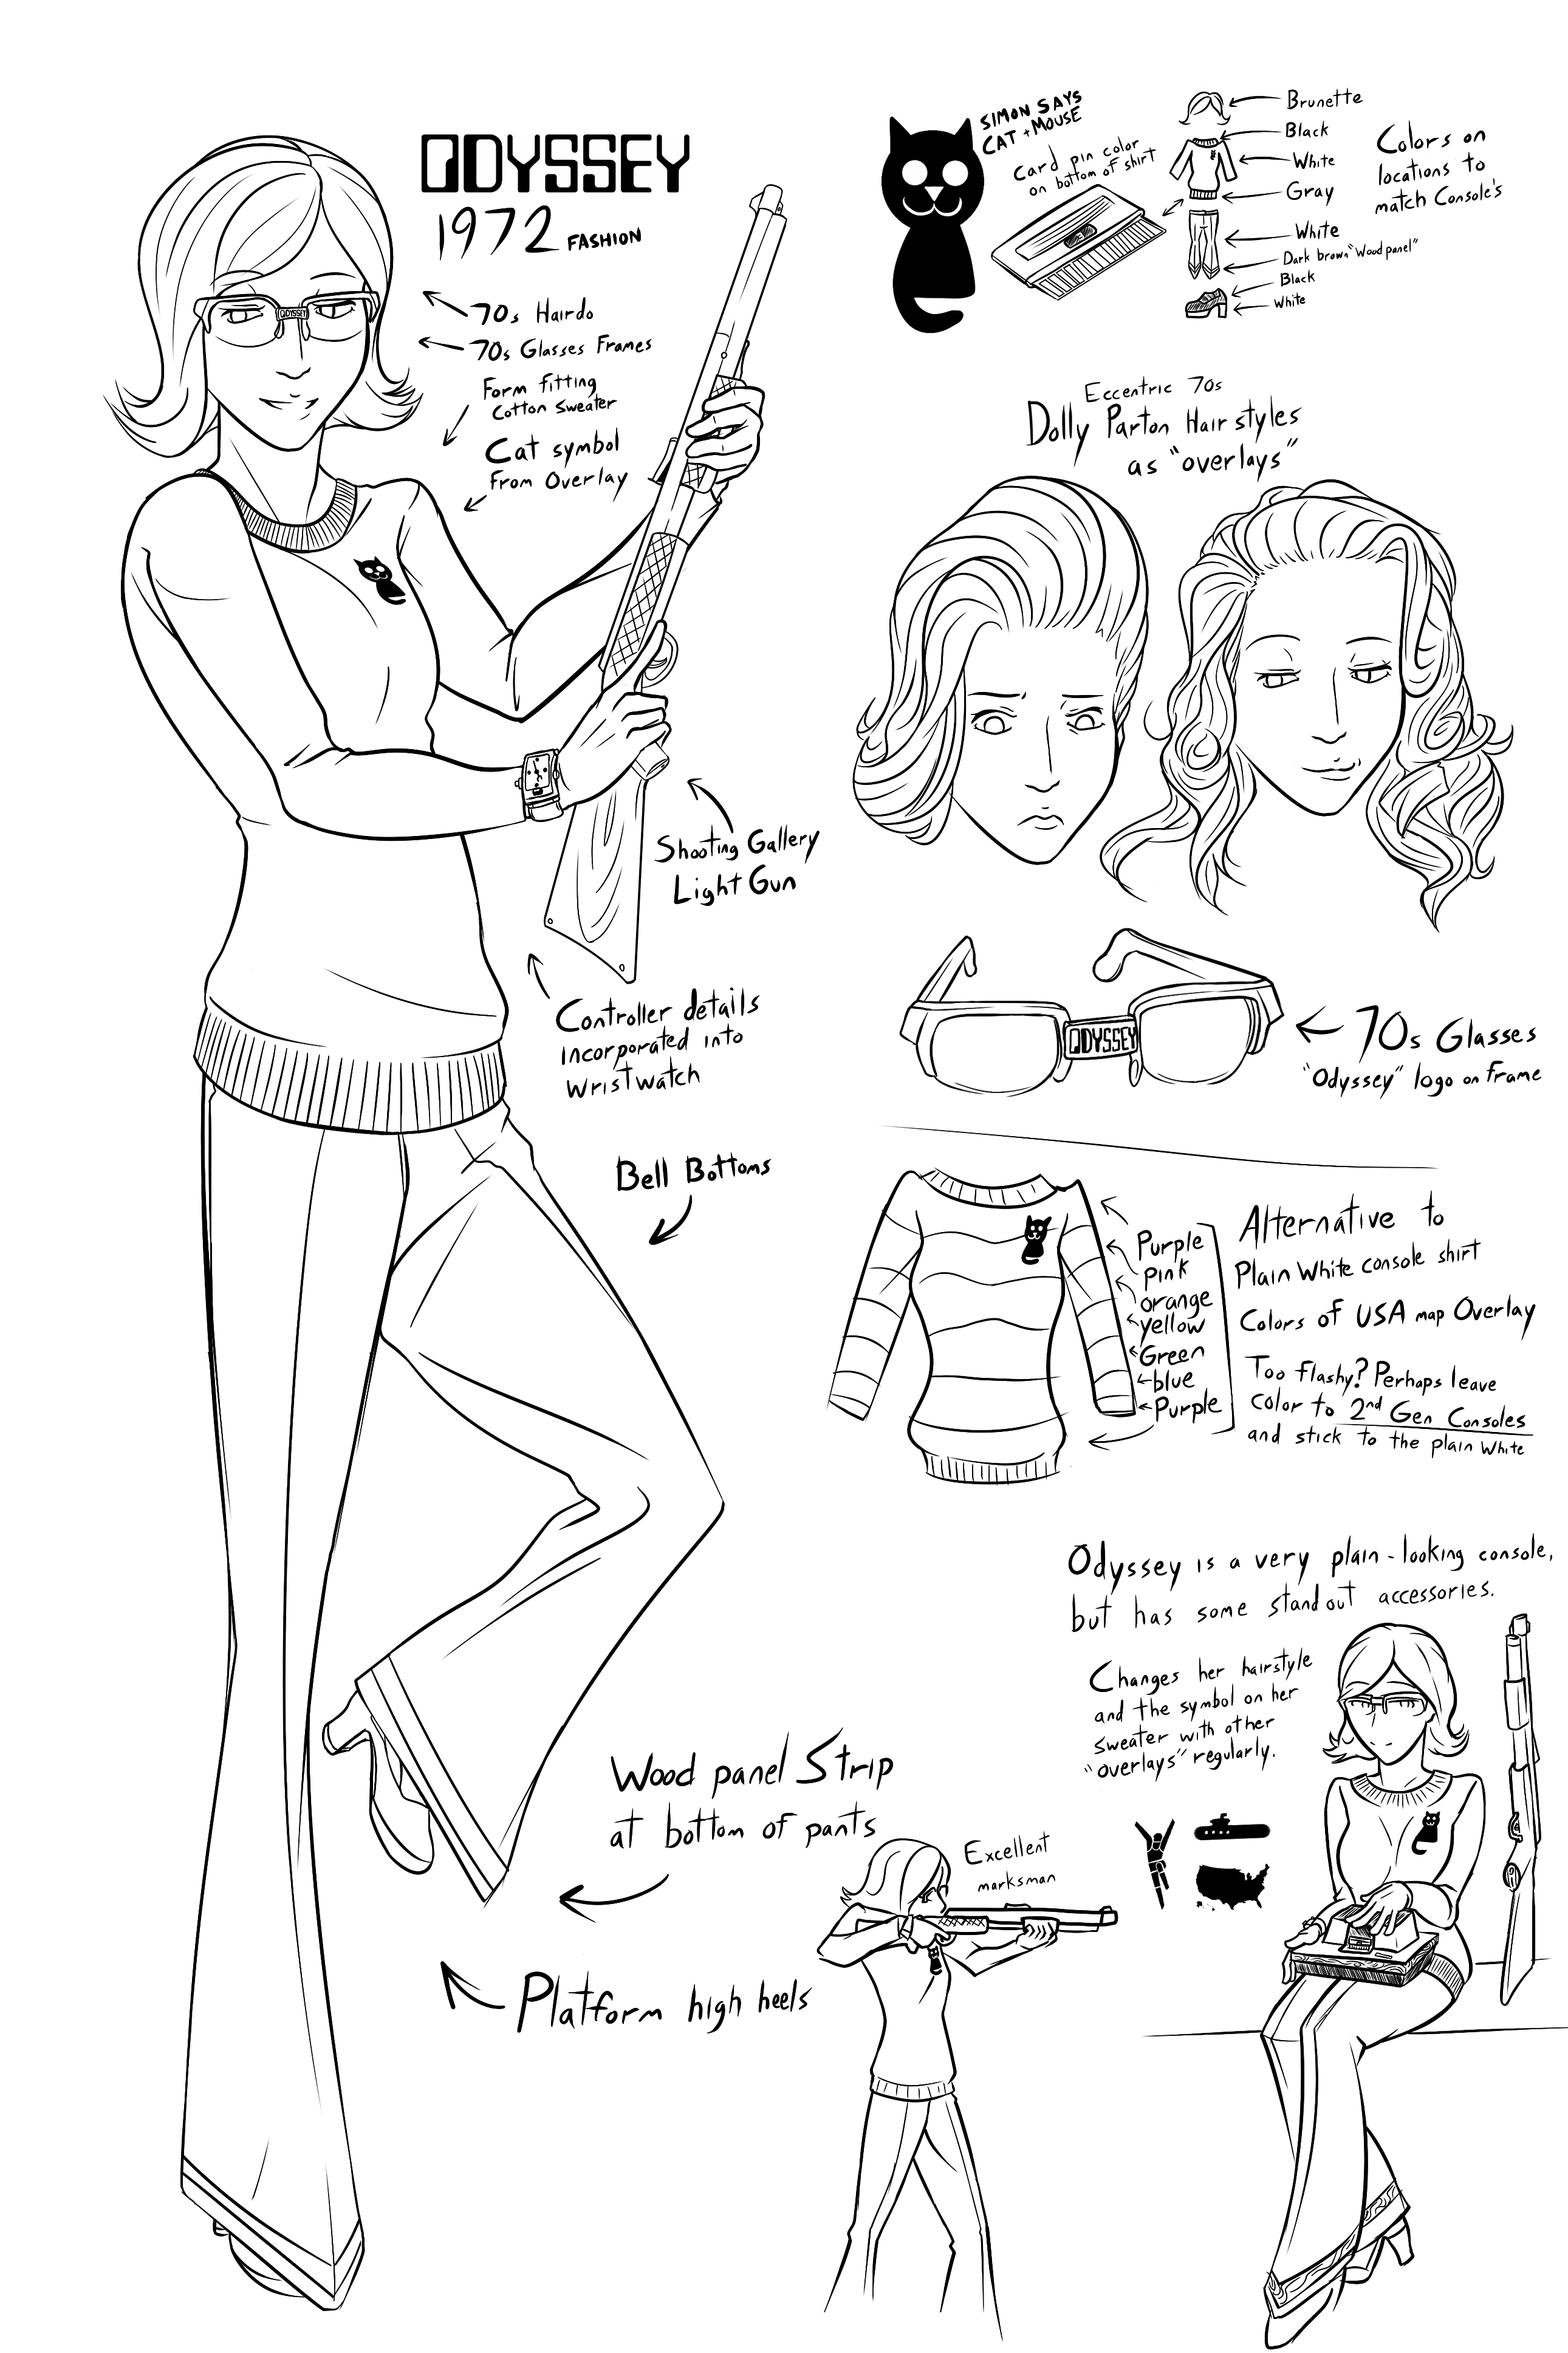 ODYSSEY
1972 FASHION
70s Hairdo
70s Glasses Frames
Form fitting
Cotton Sweater
Cat symbol
From Overlay
ODYSSEY
Shooting Gallery
Light Gun
Controller details
incorporated into
Wristwatch
Bell Bottoms
Wood panel Strip
at bottom of pants
Platform high heels
SIMON SAYS
CAT + MOUSE
Card pin color
on bottom of shirt
Brunette
Black
White
Gray
White
Dark brown "Wood panel"
Black
White
Colors on
locations to
match Console's
Eccentric 70s
Dolly Parton Hairstyles
as "overlays"
ODYSSEY
70s Glasses
"Odyssey" logo on frame
Purple
Pink
orange
yellow
Green
blue
Purple
Alternative to
Plain White console shirt
Colors of USA map Overlay
Too flashy? Perhaps leave
color to 2nd Gen Consoles
and stick to the plain White
Odyssey is a very plain-looking console,
but has some standout accessories.
Changes her hairstyle
and the symbol on her
sweater with other
"overlays" regularly.
Excellent
marksman